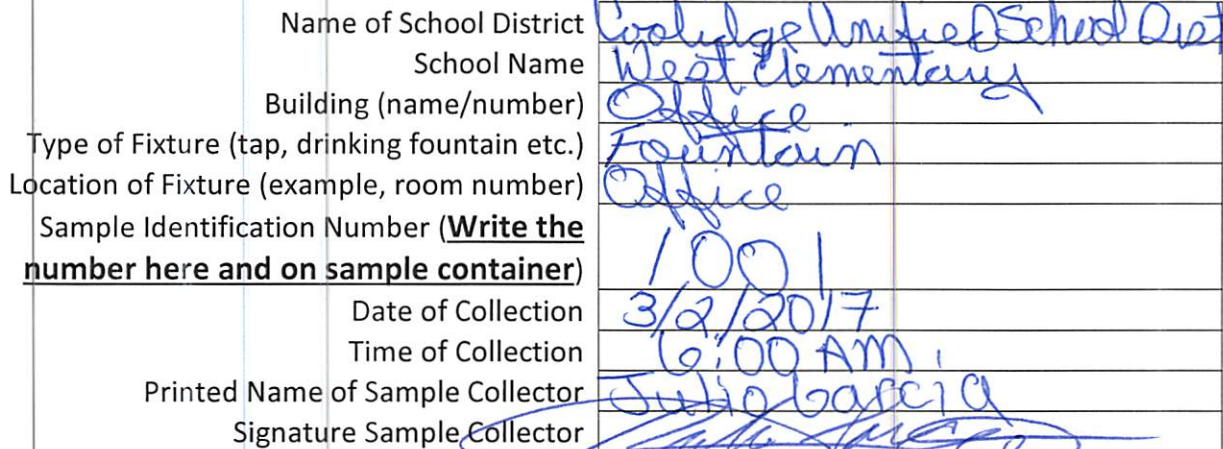 Name of School District Coolidge Unified School Dist
School Name West Elementary
Building (name/number) Office
Type of Fixture (tap, drinking fountain etc.) Fountain
Location of Fixture (example, room number) Office
Sample Identification Number (Write the
number here and on sample container) 1001
Date of Collection 3/2/2017
Time of Collection 6:00 AM
Printed Name of Sample Collector Julio Garcia
Signature Sample Collector